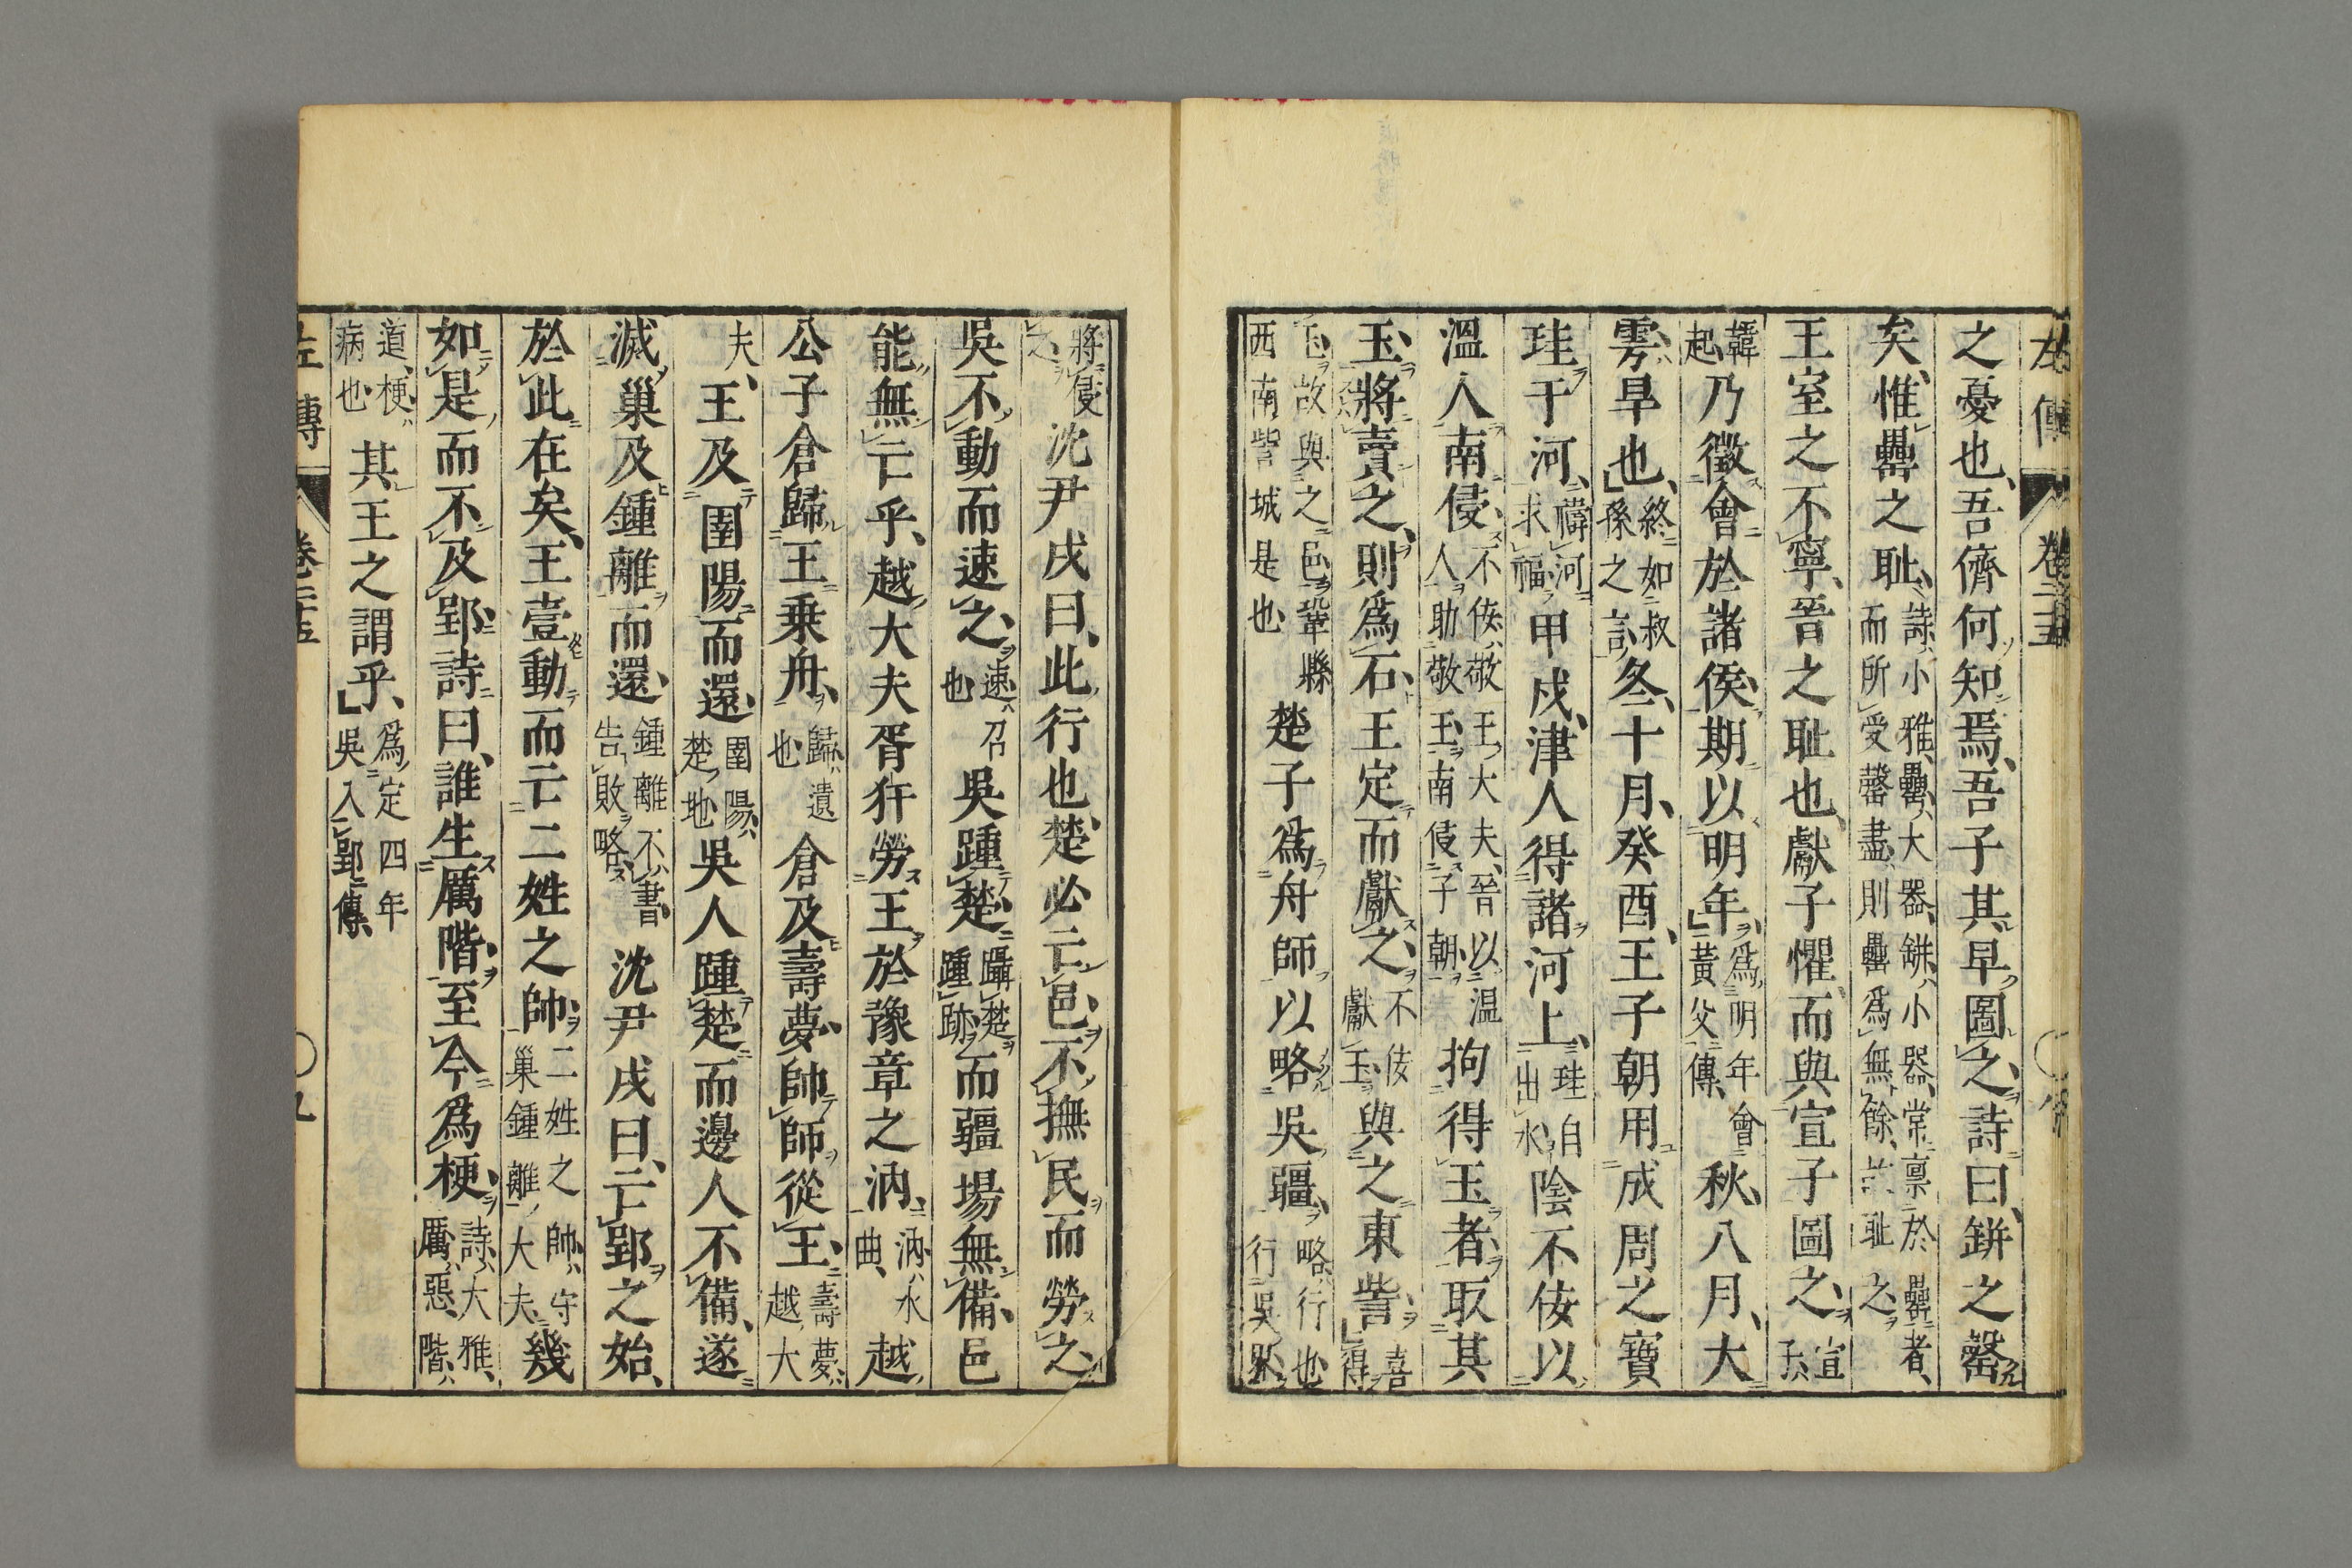 左傳 卷二十五
之憂也、吾儕何知焉、吾子其早圖之、詩曰、缾之罄
矣、惟罍之耻、詩小雅、罍大器、缾小器、常禀於罍者、而所受罄盡、則罍爲無餘、耻之
王室之不寧、晉之耻也、獻子懼而與宣子圖之、宣子
韓起乃徵會於諸侯、期以明年、爲明年會黃父傳、秋、八月、大
雩、旱也、終如叔孫之言冬、十月、癸酉、王子朝用成周之寶
珪于河、禱河求福甲戌、津人得諸河上、珪自出水陰不佞以
溫人南侵、不佞敬王大夫、晉以溫人助敬王南侵子朝拘得玉者、取其
玉、將賣之、則爲石、王定而獻之、不佞獻玉與之東訾、喜得
玉故與之邑、鞏縣西南訾城是也楚子爲舟師以略吳疆、略行也、行吳界
將侵之沈尹戌曰、此行也、楚必亡邑、不撫民而勞之、
吳不動而速之、速召也吳踵楚、躡楚踵跡而疆場無備、邑
能無亡乎、越大夫胥犴勞王於豫章之汭、汭水曲、越
公子倉歸王乗舟、歸遺也倉及壽夢帥師從王、壽夢越大
夫、王及圉陽而還、圉陽楚地吳人踵楚而邊人不備、遂
滅巢及鍾離而還、鍾離不書告敗略沈尹戌曰、亡郢之始、
於此在矣、王壹動而亡二姓之帥、二姓之帥守巢鍾離大夫幾
如是而不及郢、詩曰、誰生厲階、至今爲梗、詩大雅、厲惡、階
道、梗病也其王之謂乎、爲定四年吳入郢傳、
左傳 卷二十五 〇九